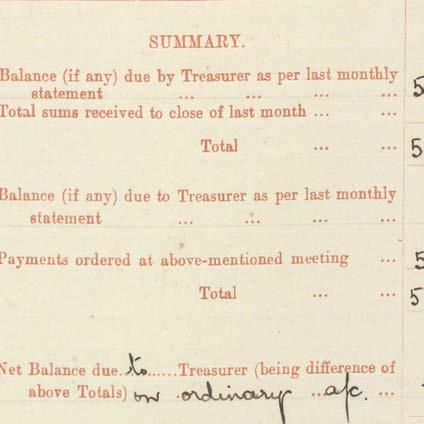 SUMMARY.
Balance (if any) due by Treasurer as per last monthly
statement ... ... ... 5
Total sums received to close of last month ... ...
Total ... ... 5
Balance (if any) due to Treasurer as per last monthly
statement ... ... ... ...
Payments ordered at above-mentioned meeting ... 5
Total ... ... 5
Net Balance due..to......Treasurer (being difference of
above Totals) on ordinary ... a/c. ...